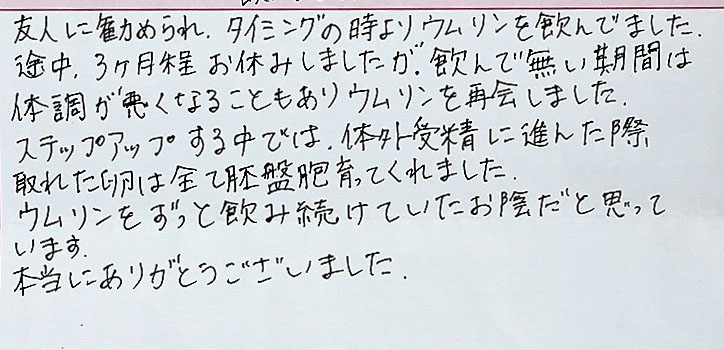 友人に勧められ、タイミングの時よりウムリンを飲んでました.
途中、3ヶ月程お休みしましたが、飲んで無い期間は
体調が悪くなることもありウムリンを再会しました.
ステップアップする中では、体外受精に進んだ際
取れた卵は全て胚盤胞育ってくれました.
ウムリンをずっと飲み続けていたお陰だと思って
います.
本当にありがとうございました.